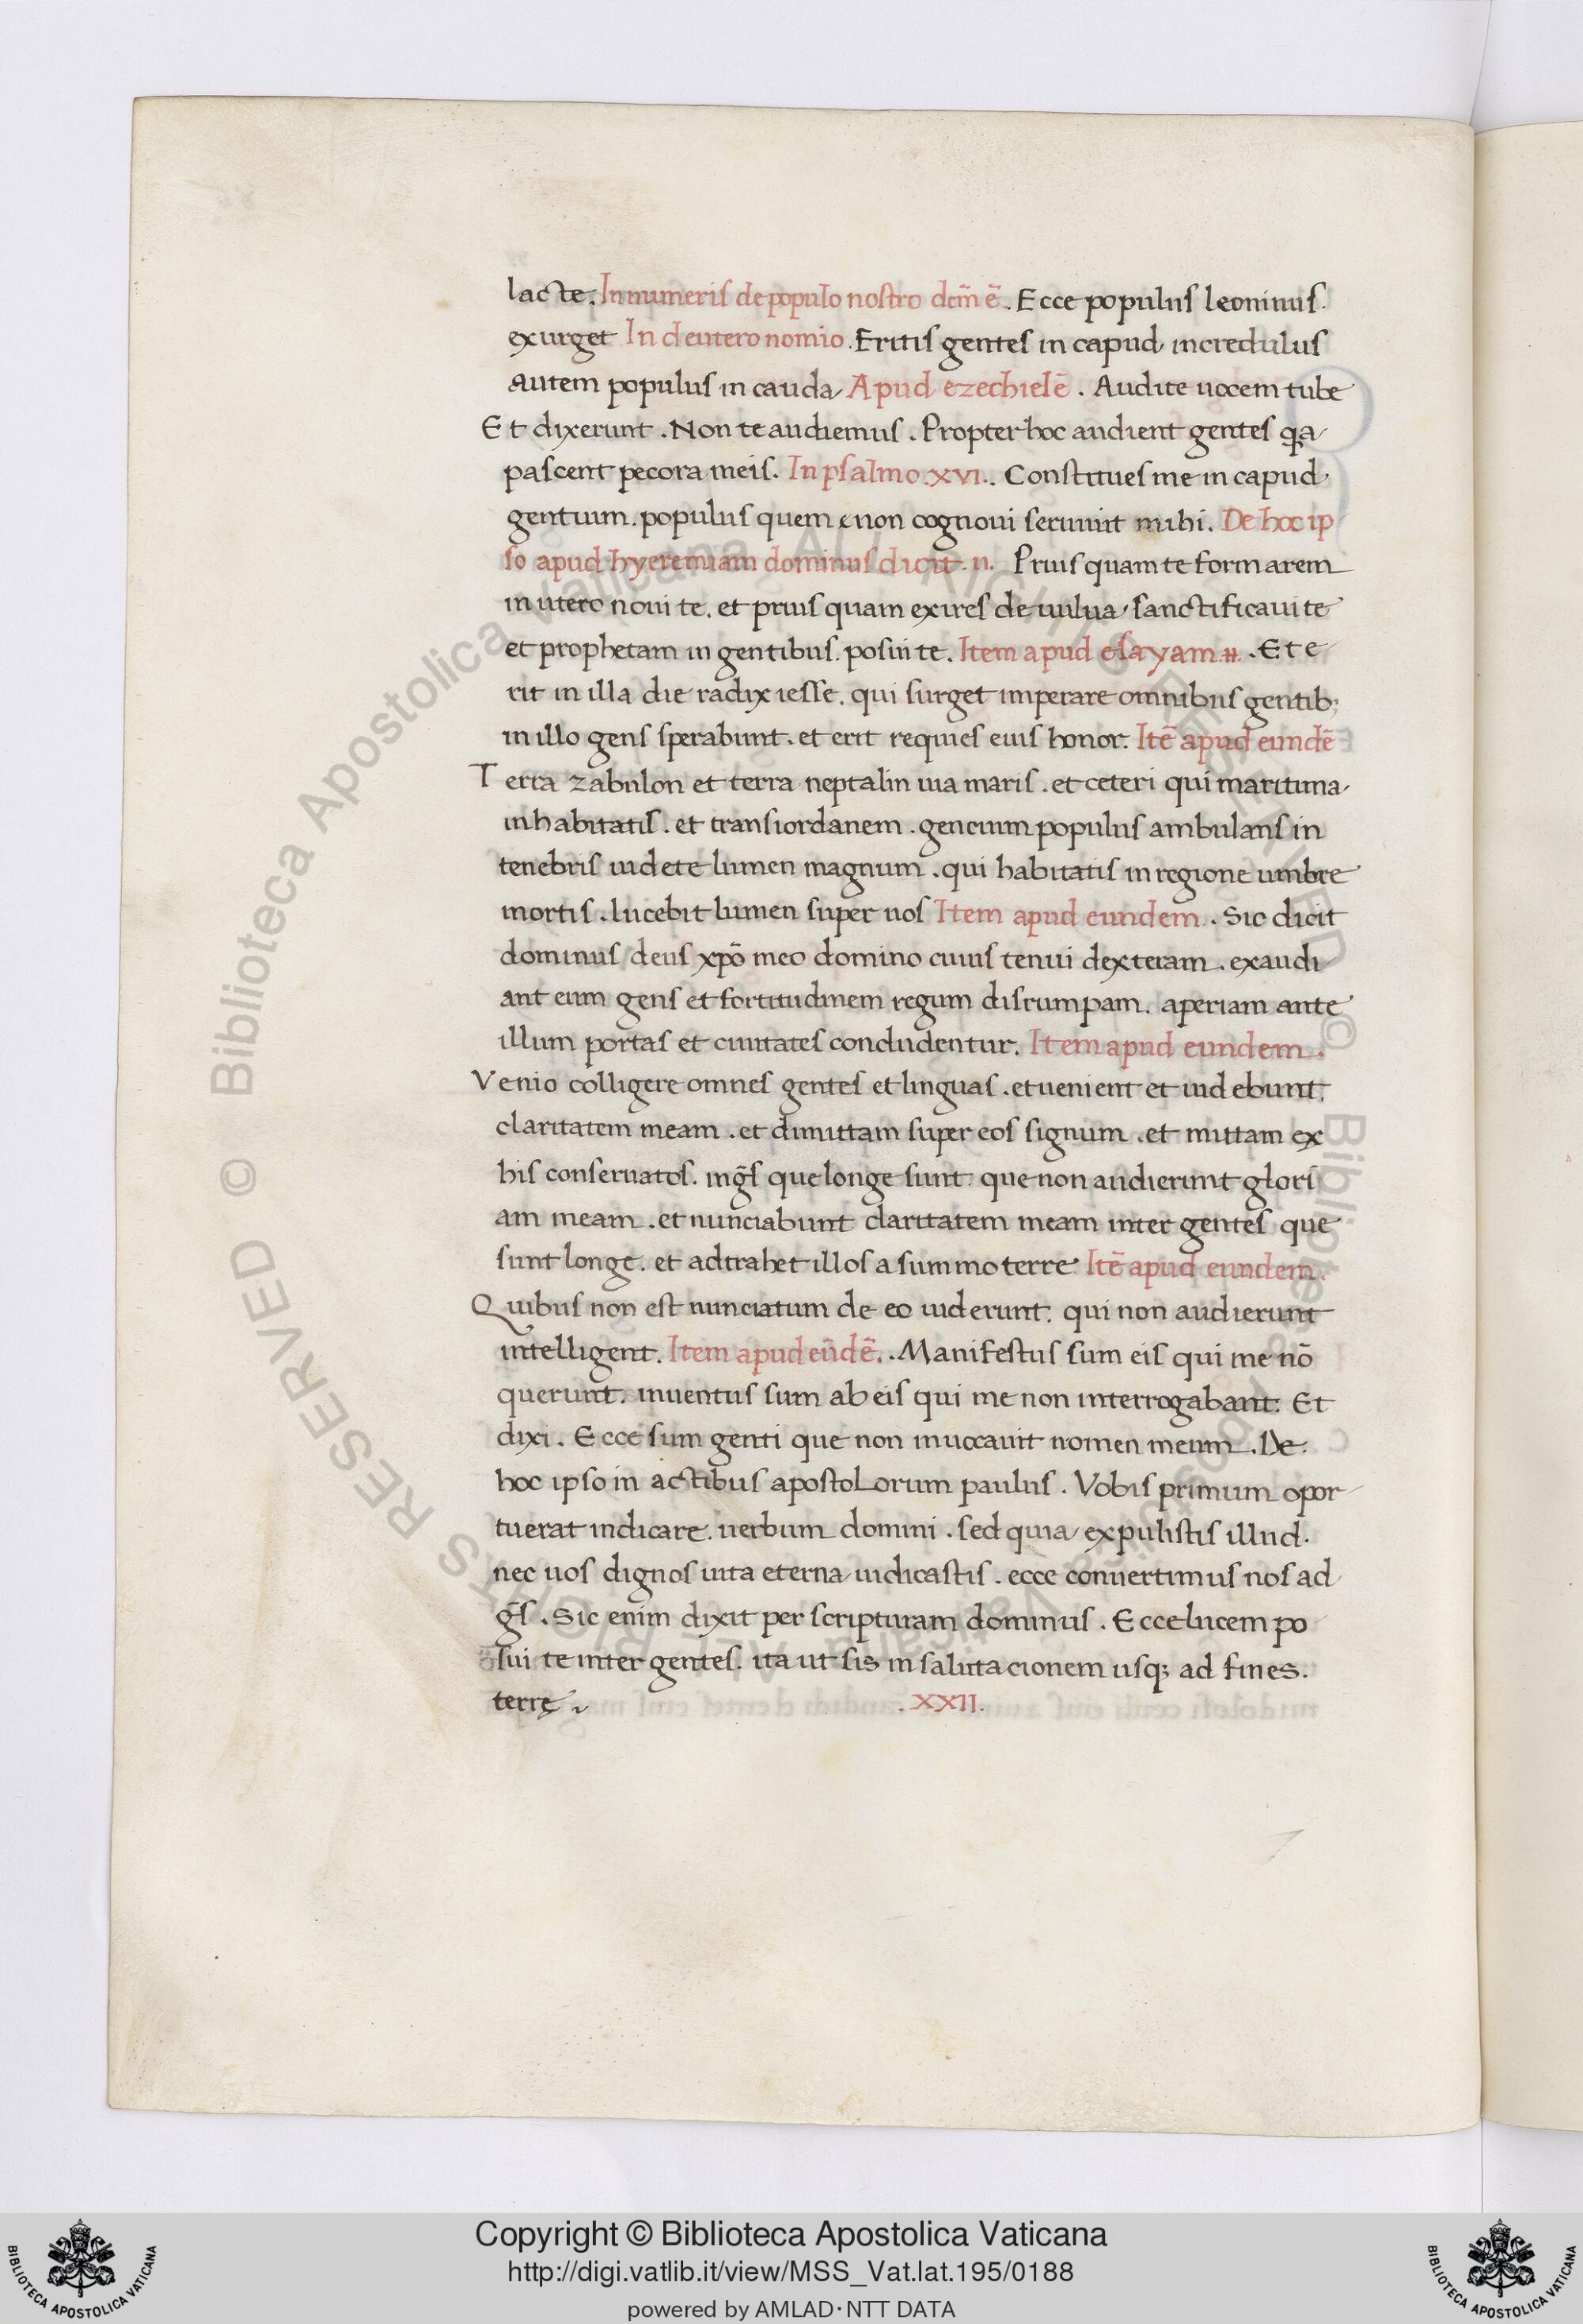 lacte. In numeris de populo nostro dcm̄ ē. Ecce populus leoninus.
exurget In deuteronomio. Eritis gentes in capud incredulus
autem populus in cauda. Apud ezechielē. Audite uocem tube
Et dixerunt. Non te audiemus. Propter hoc audient gentes qa
pascent pecora meis. In psalmo. xvi.. Constitues me in capud
gentium. populus quem non cognoui seruiuit mihi. De hoc ip
so apud hyeremiam dominus dicit. ii. Prius quam te formarem
in utero noui te. et prius quam exires de uulua, sanctificaui te
et prophetam in gentibus posui te. Item apud esayam ii. Et e
rit in illa die radix iesse. qui surget imperare omnibus gentib;
in illo gens sperabunt. et erit requies eius honor. Itē apud eundē
Terra zabulon et terra neptalin uia maris. et ceteri qui maritima
inhabitatis. et transiordanem. gencium populus ambulans in
tenebris uidete lumen magnum. qui habitatis in regione umbre
mortis. lucebit lumen super uos Item apud eundem. Sic dicit
dominus deus xpō meo domino cuius tenui dexteram. exaudi
ant eum gens et fortitudinem regum disrumpam. aperiam ante
illum portas et ciuitates concludentur. Item apud eundem.
Venio colligere omnes gentes et linguas. et uenient et uidebunt.
claritatem meam. et dimittam super eos signum. et mittam ex
his conseruatos. in gs̄ que longe sunt. que non audierunt glori
am meam. et nunciabunt claritatem meam inter gentes que
sunt longe. et adtrahet illos a summo terre Itē apud eundem.
Quibus non est nunciatum de eo uiderunt. qui non audierunt
intelligent. Item apud eūdē. Manifestus sum eis qui me nō
querunt. inuentus sum ab eis qui me non interrogabant. Et
dixi. Ecce sum genti que non inuocauit nomen meum. De
hoc ipso in actibus apostolorum paulus. Vobis primum opor
tuerat indicare. uerbum domini. sed quia expulistis illud.
nec uos dignos uita eterna iudicastis. ecce conuertimus nos ad
gs̄. Sic enim dixit per scripturam dominus. Ecce lucem po
sui te inter gentes. ita ut sis in saluta cionem usq; ad fines.
terrę. .XXII.
© Biblioteca Apostolica Vaticana ALL RIGHTS RESERVED © Biblioteca Apostolica Vaticana ALL RIGHTS RESERVED
Copyright © Biblioteca Apostolica Vaticana
http://digi.vatlib.it/view/MSS_Vat.lat.195/0188
powered by AMLAD·NTT DATA
BIBLIOTECA APOSTOLICA VATICANA
BIBLIOTECA APOSTOLICA VATICANA